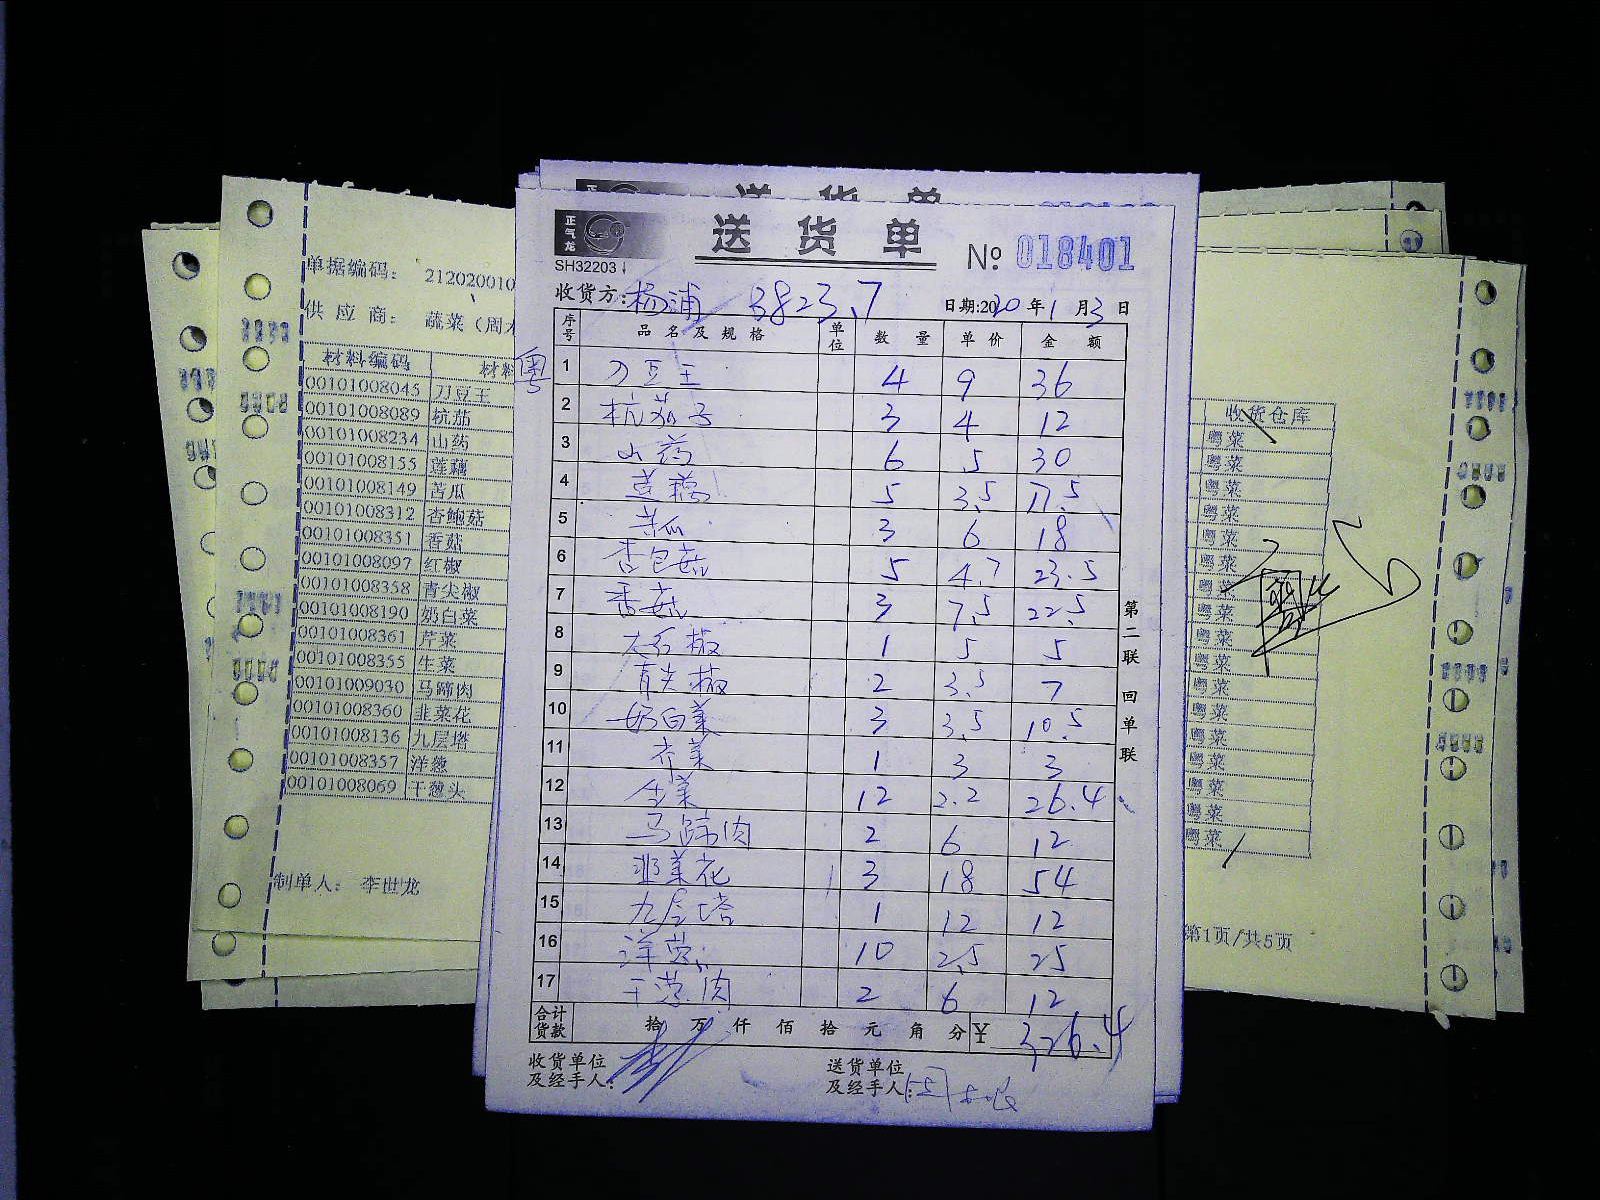 送货单
正气龙
SH32203
送货单
№ 018401
收货方: 杨浦 3823.7 日期:2020年1月3日
序号 品名及规格 单位 数量 单价 金额
粤
1 刀豆王 4 9 36
2 杭茄子 3 4 12
3 山药 6 5 30
4 莲藕 5 3.5 17.5
5 苦瓜 3 6 18
6 杏包菇 5 4.7 23.5
7 香菇 3 7.5 22.5
8 大红椒 1 5 5
9 青尖椒 2 3.5 7
10 奶白菜 3 3.5 10.5
11 芹菜 1 3 3
12 生菜 12 2.2 26.4
13 马蹄肉 2 6 12
14 韭菜花 3 18 54
15 九层塔 1 12 12
16 洋葱 10 2.5 25
17 干葱肉 2 6 12
合计货款 拾 万 仟 佰 拾 元 角 分 ¥ 326.4
收货单位及经手人:
送货单位及经手人: 周
第二联 回单联
单据编码: 212020010
供应商: 蔬菜(周
材料编码 材料
00101008045 刀豆王
00101008089 杭茄
00101008234 山药
00101008155 莲藕
00101008149 苦瓜
00101008312 杏鲍菇
00101008351 香菇
00101008097 红椒
00101008358 青尖椒
00101008190 奶白菜
00101008361 芹菜
00101008355 生菜
00101009030 马蹄肉
00101008360 韭菜花
00101008136 九层塔
00101008357 洋葱
00101008069 干葱头
制单人: 李世龙
收货仓库
粤菜
粤菜
粤菜
粤菜
粤菜
粤菜
粤菜
粤菜
粤菜
粤菜
粤菜
粤菜
粤菜
粤菜
粤菜
粤菜
粤菜
第1页/共5页